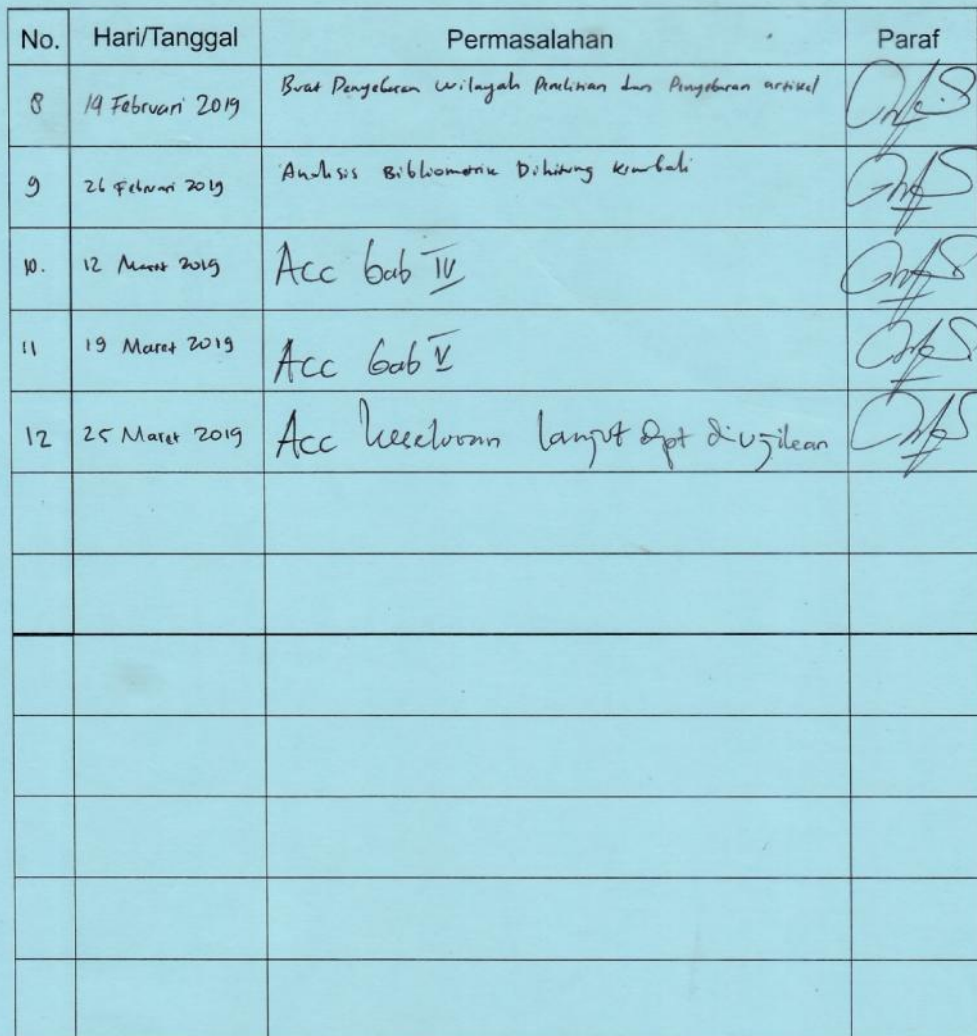 No. Hari/Tanggal Permasalahan Paraf
8 19 Februari 2019 Buat Penyebaran wilayah Penelitian dan Penyebaran artikel
9 26 Februari 2019 Analisis Bibliometrik Dihitung Kembali
10. 12 Maret 2019 Acc bab IV
11 19 Maret 2019 Acc bab V
12 25 Maret 2019 Acc keseluruan lanjut dpt diujikan